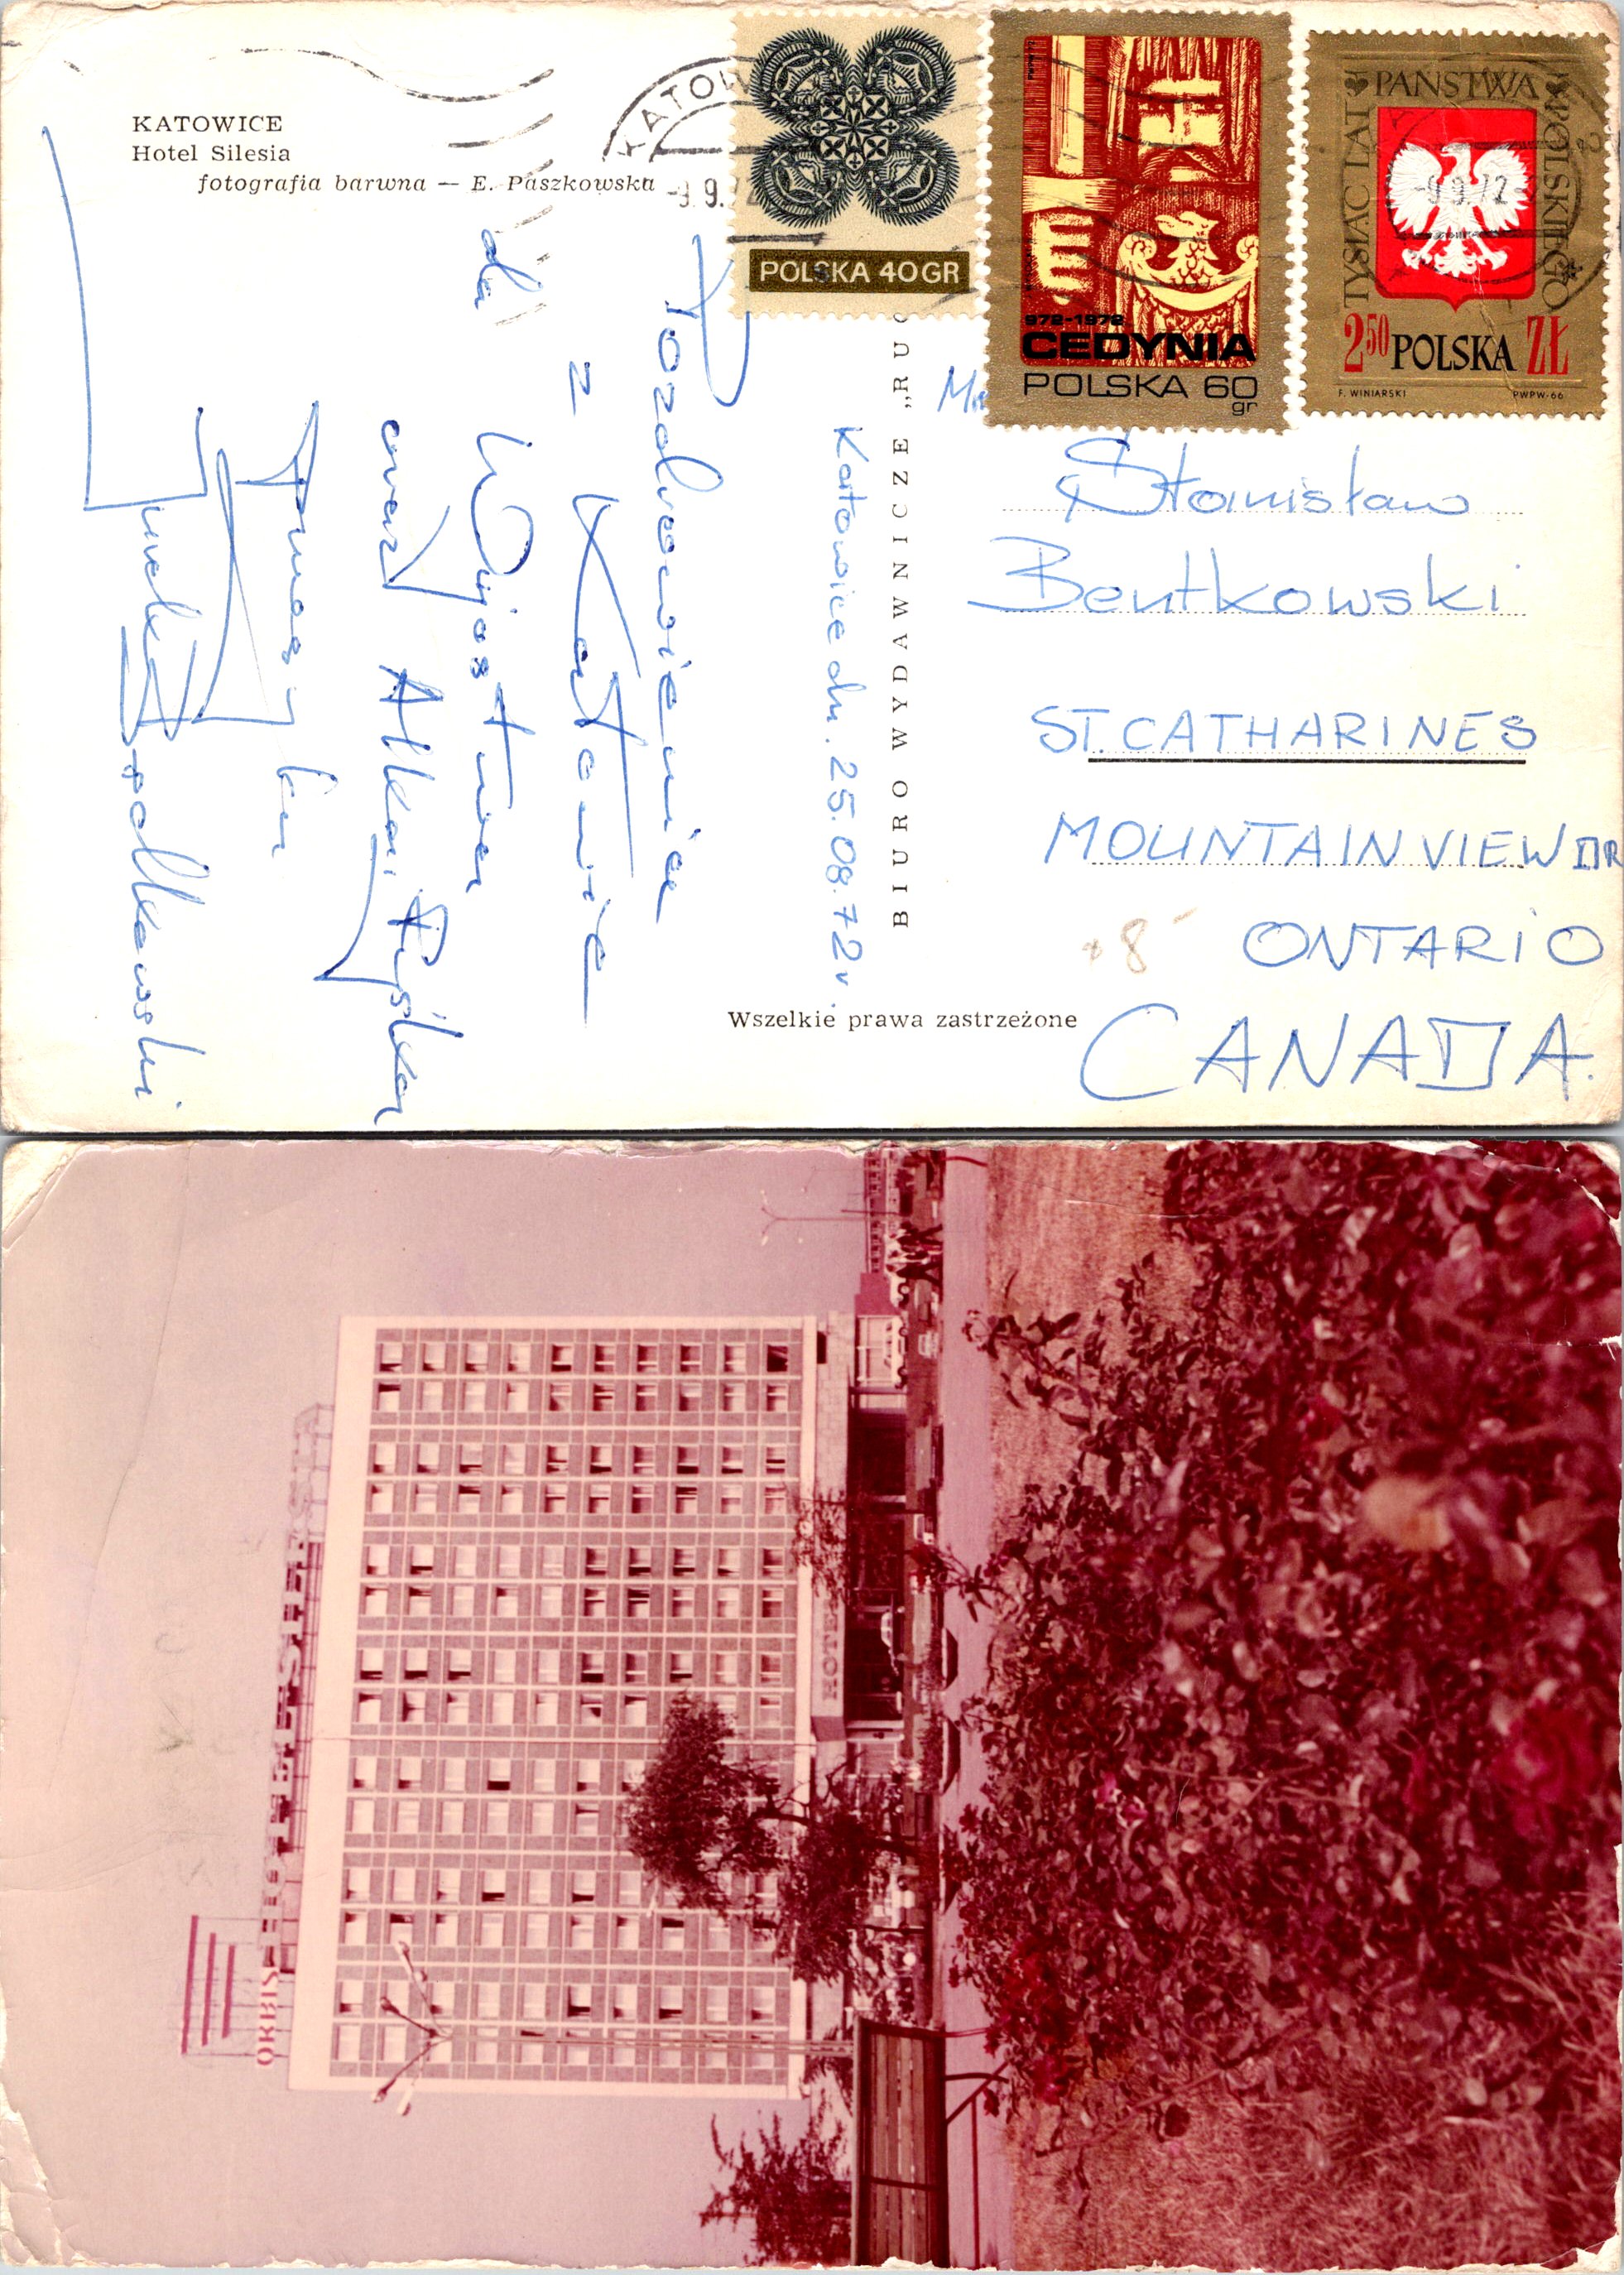 KATOWICE
Hotel Silesia
fotografia barwna — E. Paszkowska
KATOW
-9.9.72
POLSKA 40GR
972-1972
CEDYNIA
POLSKA 60
gr
TYSIĄC LAT PAŃSTWA POLSKIEGO
-9.9.72-
2⁵⁰ POLSKA ZŁ
F. WINIARSKI PWPW-66
BIURO WYDAWNICZE „RUC
Katowice dn. 25.08.72r.
Pozdrowienia
z Katowic
dla Wujostwa
oraz
Jurek
Stanisław
Bentkowski
ST. CATHARINES
MOUNTAIN VIEW DR
+8
ONTARIO
CANADA.
Wszelkie prawa zastrzeżone
ORBIS
HOTEL